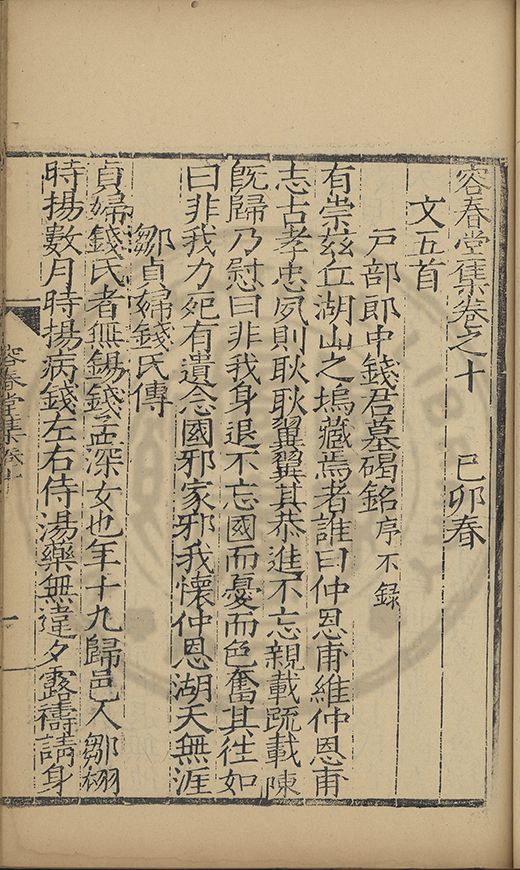 容春堂集卷之十　己卯春
文五首
戸部郎中錢君墓碣銘序不錄
有崇茲丘湖山之塢藏焉者誰曰仲恩甫維仲恩甫
志古孝忠夙則耿耿翼翼其恭進不忘親載疏載陳
旣歸乃慰曰非我身退不忘國而憂而色奮其徃如
曰非我力死有遺念國邪家邪我懷仲恩湖天無涯
鄒貞婦錢氏傳
貞婦錢氏者無錫錢孟深女也年十九歸邑人鄒栩
時揚數月時揚病錢左右侍湯藥無違夕露禱請身
容春堂集 卷十 一